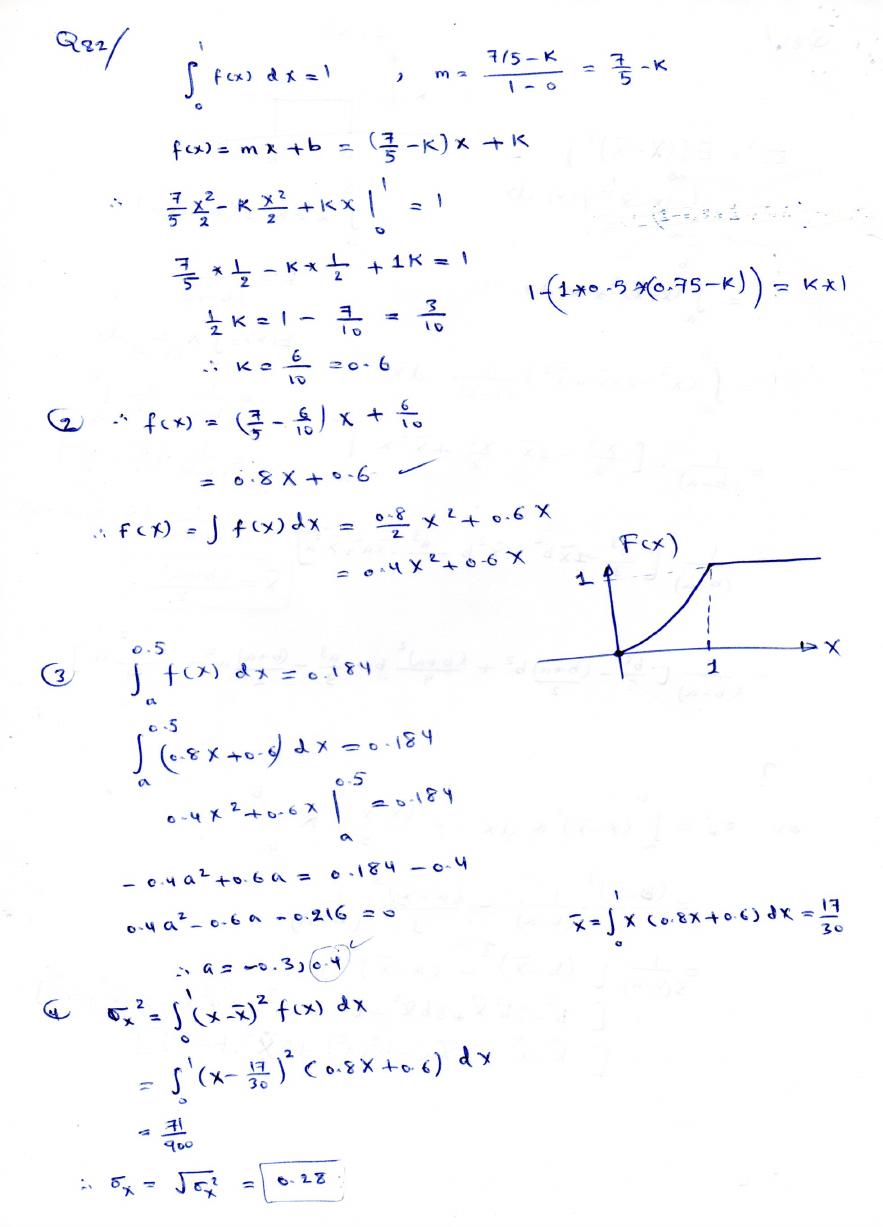 Q82/
∫₀¹ f(x) dx = 1 , m = (7/5 - K)/(1 - 0) = 7/5 - K
f(x) = mx + b = (7/5 - K)x + K
∴ 7/5 x²/2 - K x²/2 + Kx |₀¹ = 1
7/5 * 1/2 - K * 1/2 + 1K = 1
1-(1*0.5*(0.75-K)) = K*1
1/2 K = 1 - 7/10 = 3/10
∴ K = 6/10 = 0.6
② ∴ f(x) = (7/5 - 6/10) x + 6/10
= 0.8X + 0.6 ✓
∴ F(X) = ∫ f(x) dx = 0.8/2 x² + 0.6 X
= 0.4 X² + 0.6 X
F(x)
1
X
1
③ ∫ₐ^0.5 f(x) dx = 0.184
∫ₐ^0.5 (0.8X + 0.6) dx = 0.184
0.4 x² + 0.6 x |ₐ^0.5 = 0.184
- 0.4 a² + 0.6 a = 0.184 - 0.4
0.4 a² - 0.6 a - 0.216 = 0
x̄ = ∫₀¹ x (0.8X + 0.6) dx = 17/30
∴ a = -0.3, 0.4 ✓
④ σₓ² = ∫₀¹ (x - x̄)² f(x) dx
= ∫₀¹ (x - 17/30)² (0.8X + 0.6) dx
= 71/900
∴ σₓ = √σₓ² = 0.28